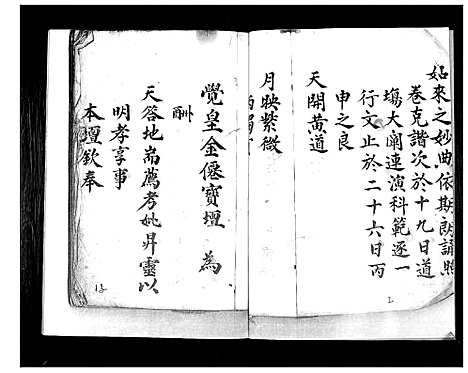 如來之妙曲依斯朗誦照
卷克諧次於十九日道
塲大闡連演科範逐一
行文止於二十六日丙
申之良
天開黄道
月映紫微
覺皇金僊寳壇　為
酬
天荅地耑薦考妣昇靈以
明孝享事
本壇欽奉